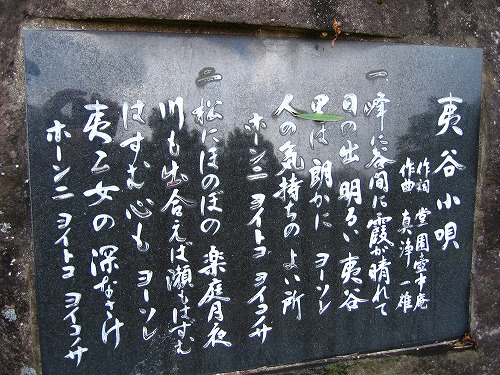 夷谷小唄
作詞 堂園空中庵
作曲 真浄一雄
一、峰に谷間に霞が晴れて
日の出明るい夷谷
里は朗かに ヨーソレ
人の気持ちのよい所
ホーンニ ヨイトコ ヨイコノサ
二、松にほのぼの楽庭月夜
川も出合えば瀬もはずむ
はずむ心も ヨーソレ
夷乙女の深なさけ
ホーンニ ヨイトコ ヨイコノサ